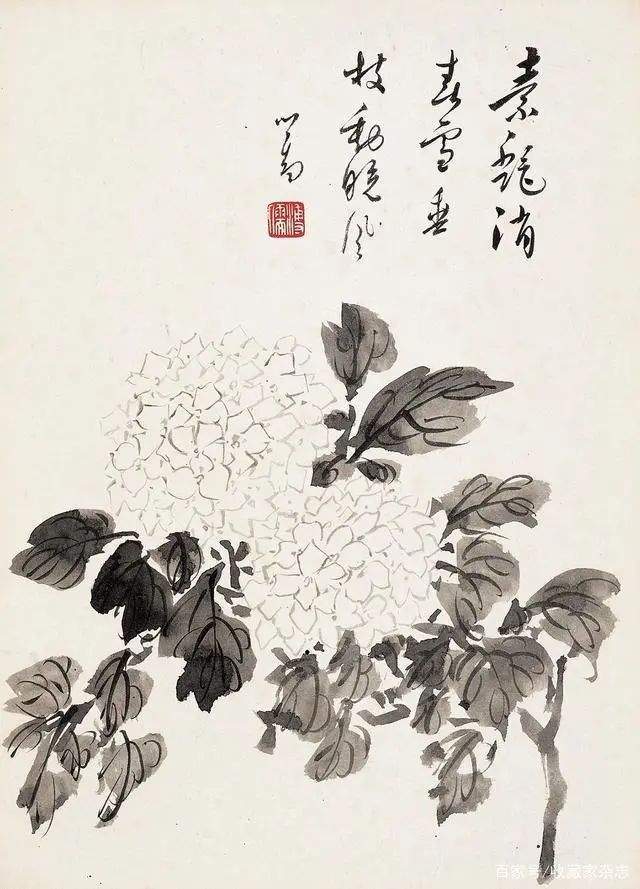 素艷消
春雪垂
枝動曉風
心畬
溥儒
百家号/收藏家杂志